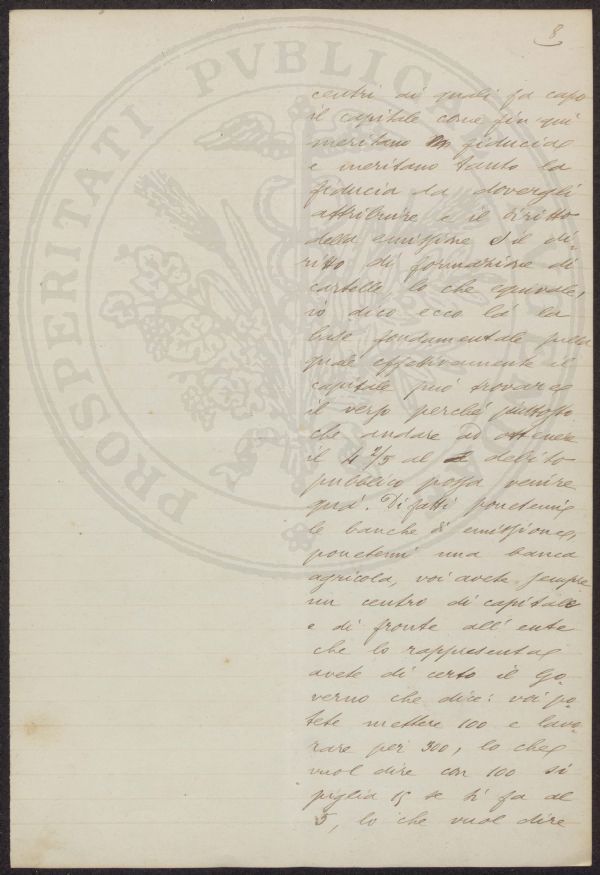 8
PROSPERITATI PVBLICAE
centri ai quali fa capo
il capitale come fin qui
meritano fiducia
e meritano tanto la
fiducia da dovergli
attribuire e il diritto
della emissione e il di-
ritto di formazione di
cartelle lo che equivale,
io dico ecco là la
base fondamentale
quale effettivamente il
capitale può trovare
il verso perché piuttosto
che andare ad ottenere
il 4 2/5 al debito
pubblico possa venire
quà. Difatti ponetemi
le banche di emissione,
ponetemi una banca
agricola, voi avete sempre
un centro di capitale
e di fronte all'ente
che lo rappresenta
avete di certo il Go-
verno che dice: voi po-
tete mettere 100 e lavo-
rare per 300, lo che
vuol dire con 100 si
piglia 15 se si fa al
5, lo che vuol dire